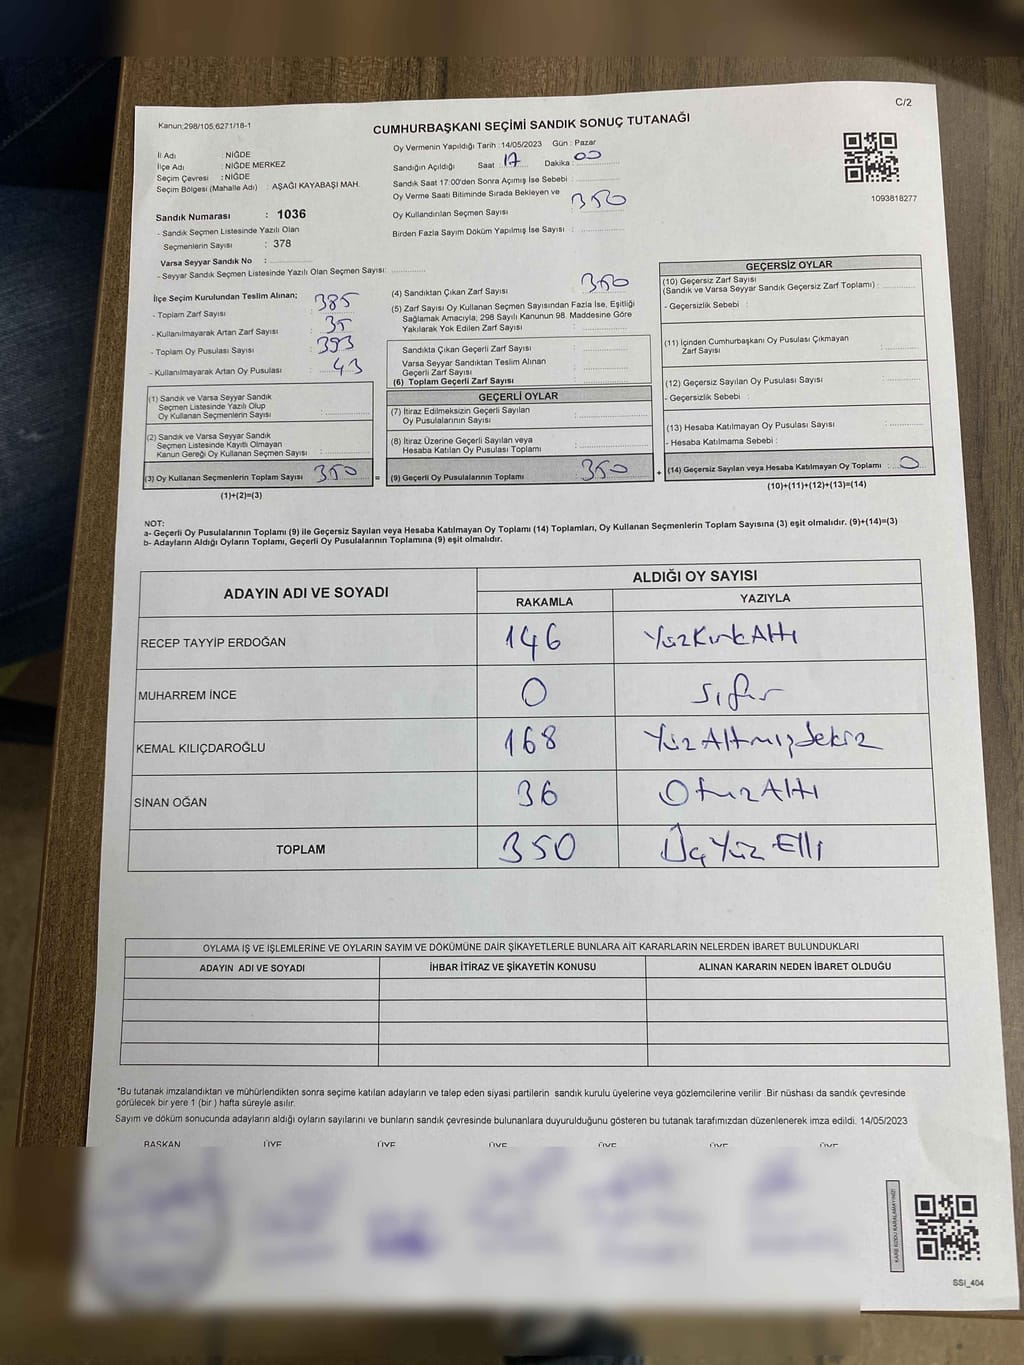 C/2
Kanun;298/105;6271/18-1
CUMHURBAŞKANI SEÇİMİ SANDIK SONUÇ TUTANAĞI
İl Adı : NİĞDE
İlçe Adı : NİĞDE MERKEZ
Seçim Çevresi : NİĞDE
Seçim Bölgesi (Mahalle Adı) : AŞAĞI KAYABAŞI MAH.
Oy Vermenin Yapıldığı Tarih : 14/05/2023 Gün : Pazar
Sandığın Açıldığı Saat : 17 Dakika : 00
Sandık Saat 17:00'den Sonra Açımış İse Sebebi :
Oy Verme Saati Bitiminde Sırada Bekleyen ve
Oy Kullandırılan Seçmen Sayısı 350
Birden Fazla Sayım Döküm Yapılmış İse Sayısı :
1093818277
Sandık Numarası : 1036
- Sandık Seçmen Listesinde Yazılı Olan
Seçmenlerin Sayısı : 378
Varsa Seyyar Sandık No :
- Seyyar Sandık Seçmen Listesinde Yazılı Olan Seçmen Sayısı:
İlçe Seçim Kurulundan Teslim Alınan;
- Toplam Zarf Sayısı : 385
- Kullanılmayarak Artan Zarf Sayısı : 35
- Toplam Oy Pusulası Sayısı : 393
- Kullanılmayarak Artan Oy Pusulası : 43
(1) Sandık ve Varsa Seyyar Sandık
Seçmen Listesinde Yazılı Olup
Oy Kullanan Seçmenlerin Sayısı :
(2) Sandık ve Varsa Seyyar Sandık
Seçmen Listesinde Kayıtlı Olmayan
Kanun Gereği Oy Kullanan Seçmen Sayısı :
(3) Oy Kullanan Seçmenlerin Toplam Sayısı : 350
(1)+(2)=(3)
(4) Sandıktan Çıkan Zarf Sayısı : 350
(5) Zarf Sayısı Oy Kullanan Seçmen Sayısından Fazla İse, Eşitliği
Sağlamak Amacıyla; 298 Sayılı Kanunun 98. Maddesine Göre
Yakılarak Yok Edilen Zarf Sayısı :
Sandıkta Çıkan Geçerli Zarf Sayısı :
Varsa Seyyar Sandıktan Teslim Alınan
Geçerli Zarf Sayısı :
(6) Toplam Geçerli Zarf Sayısı :
GEÇERLİ OYLAR
(7) İtiraz Edilmeksizin Geçerli Sayılan
Oy Pusulalarının Sayısı :
(8) İtiraz Üzerine Geçerli Sayılan veya
Hesaba Katılan Oy Pusulası Toplamı :
= (9) Geçerli Oy Pusulalarının Toplamı : 350
GEÇERSİZ OYLAR
(10) Geçersiz Zarf Sayısı
(Sandık ve Varsa Seyyar Sandık Geçersiz Zarf Toplamı) :
- Geçersizlik Sebebi :
(11) İçinden Cumhurbaşkanı Oy Pusulası Çıkmayan
Zarf Sayısı :
(12) Geçersiz Sayılan Oy Pusulası Sayısı :
- Geçersizlik Sebebi :
(13) Hesaba Katılmayan Oy Pusulası Sayısı :
- Hesaba Katılmama Sebebi :
+ (14) Geçersiz Sayılan veya Hesaba Katılmayan Oy Toplamı : 0
(10)+(11)+(12)+(13)=(14)
NOT:
a- Geçerli Oy Pusulalarının Toplamı (9) ile Geçersiz Sayılan veya Hesaba Katılmayan Oy Toplamı (14) Toplamları, Oy Kullanan Seçmenlerin Toplam Sayısına (3) eşit olmalıdır. (9)+(14)=(3)
b- Adayların Aldığı Oyların Toplamı, Geçerli Oy Pusulalarının Toplamına (9) eşit olmalıdır.
ADAYIN ADI VE SOYADI
ALDIĞI OY SAYISI
RAKAMLA YAZIYLA
RECEP TAYYİP ERDOĞAN 146 YüzKırkAltı
MUHARREM İNCE 0 Sıfır
KEMAL KILIÇDAROĞLU 168 YüzAltmışSekiz
SİNAN OĞAN 36 OtuzAltı
TOPLAM 350 Üç Yüz Elli
OYLAMA İŞ VE İŞLEMLERİNE VE OYLARIN SAYIM VE DÖKÜMÜNE DAİR ŞİKAYETLERLE BUNLARA AİT KARARLARIN NELERDEN İBARET BULUNDUKLARI
ADAYIN ADI VE SOYADI İHBAR İTİRAZ VE ŞİKAYETİN KONUSU ALINAN KARARIN NEDEN İBARET OLDUĞU
*Bu tutanak imzalandıktan ve mühürlendikten sonra seçime katılan adayların ve talep eden siyasi partilerin sandık kurulu üyelerine veya gözlemcilerine verilir .Bir nüshası da sandık çevresinde
görülecek bir yere 1 (bir ) hafta süreyle asılır.
Sayım ve döküm sonucunda adayların aldığı oyların sayılarını ve bunların sandık çevresinde bulunanlara duyurulduğunu gösteren bu tutanak tarafımızdan düzenlenerek imza edildi. 14/05/2023
BAŞKAN ÜYE ÜYE ÜYE ÜYE ÜYE ÜYE
SSI_404